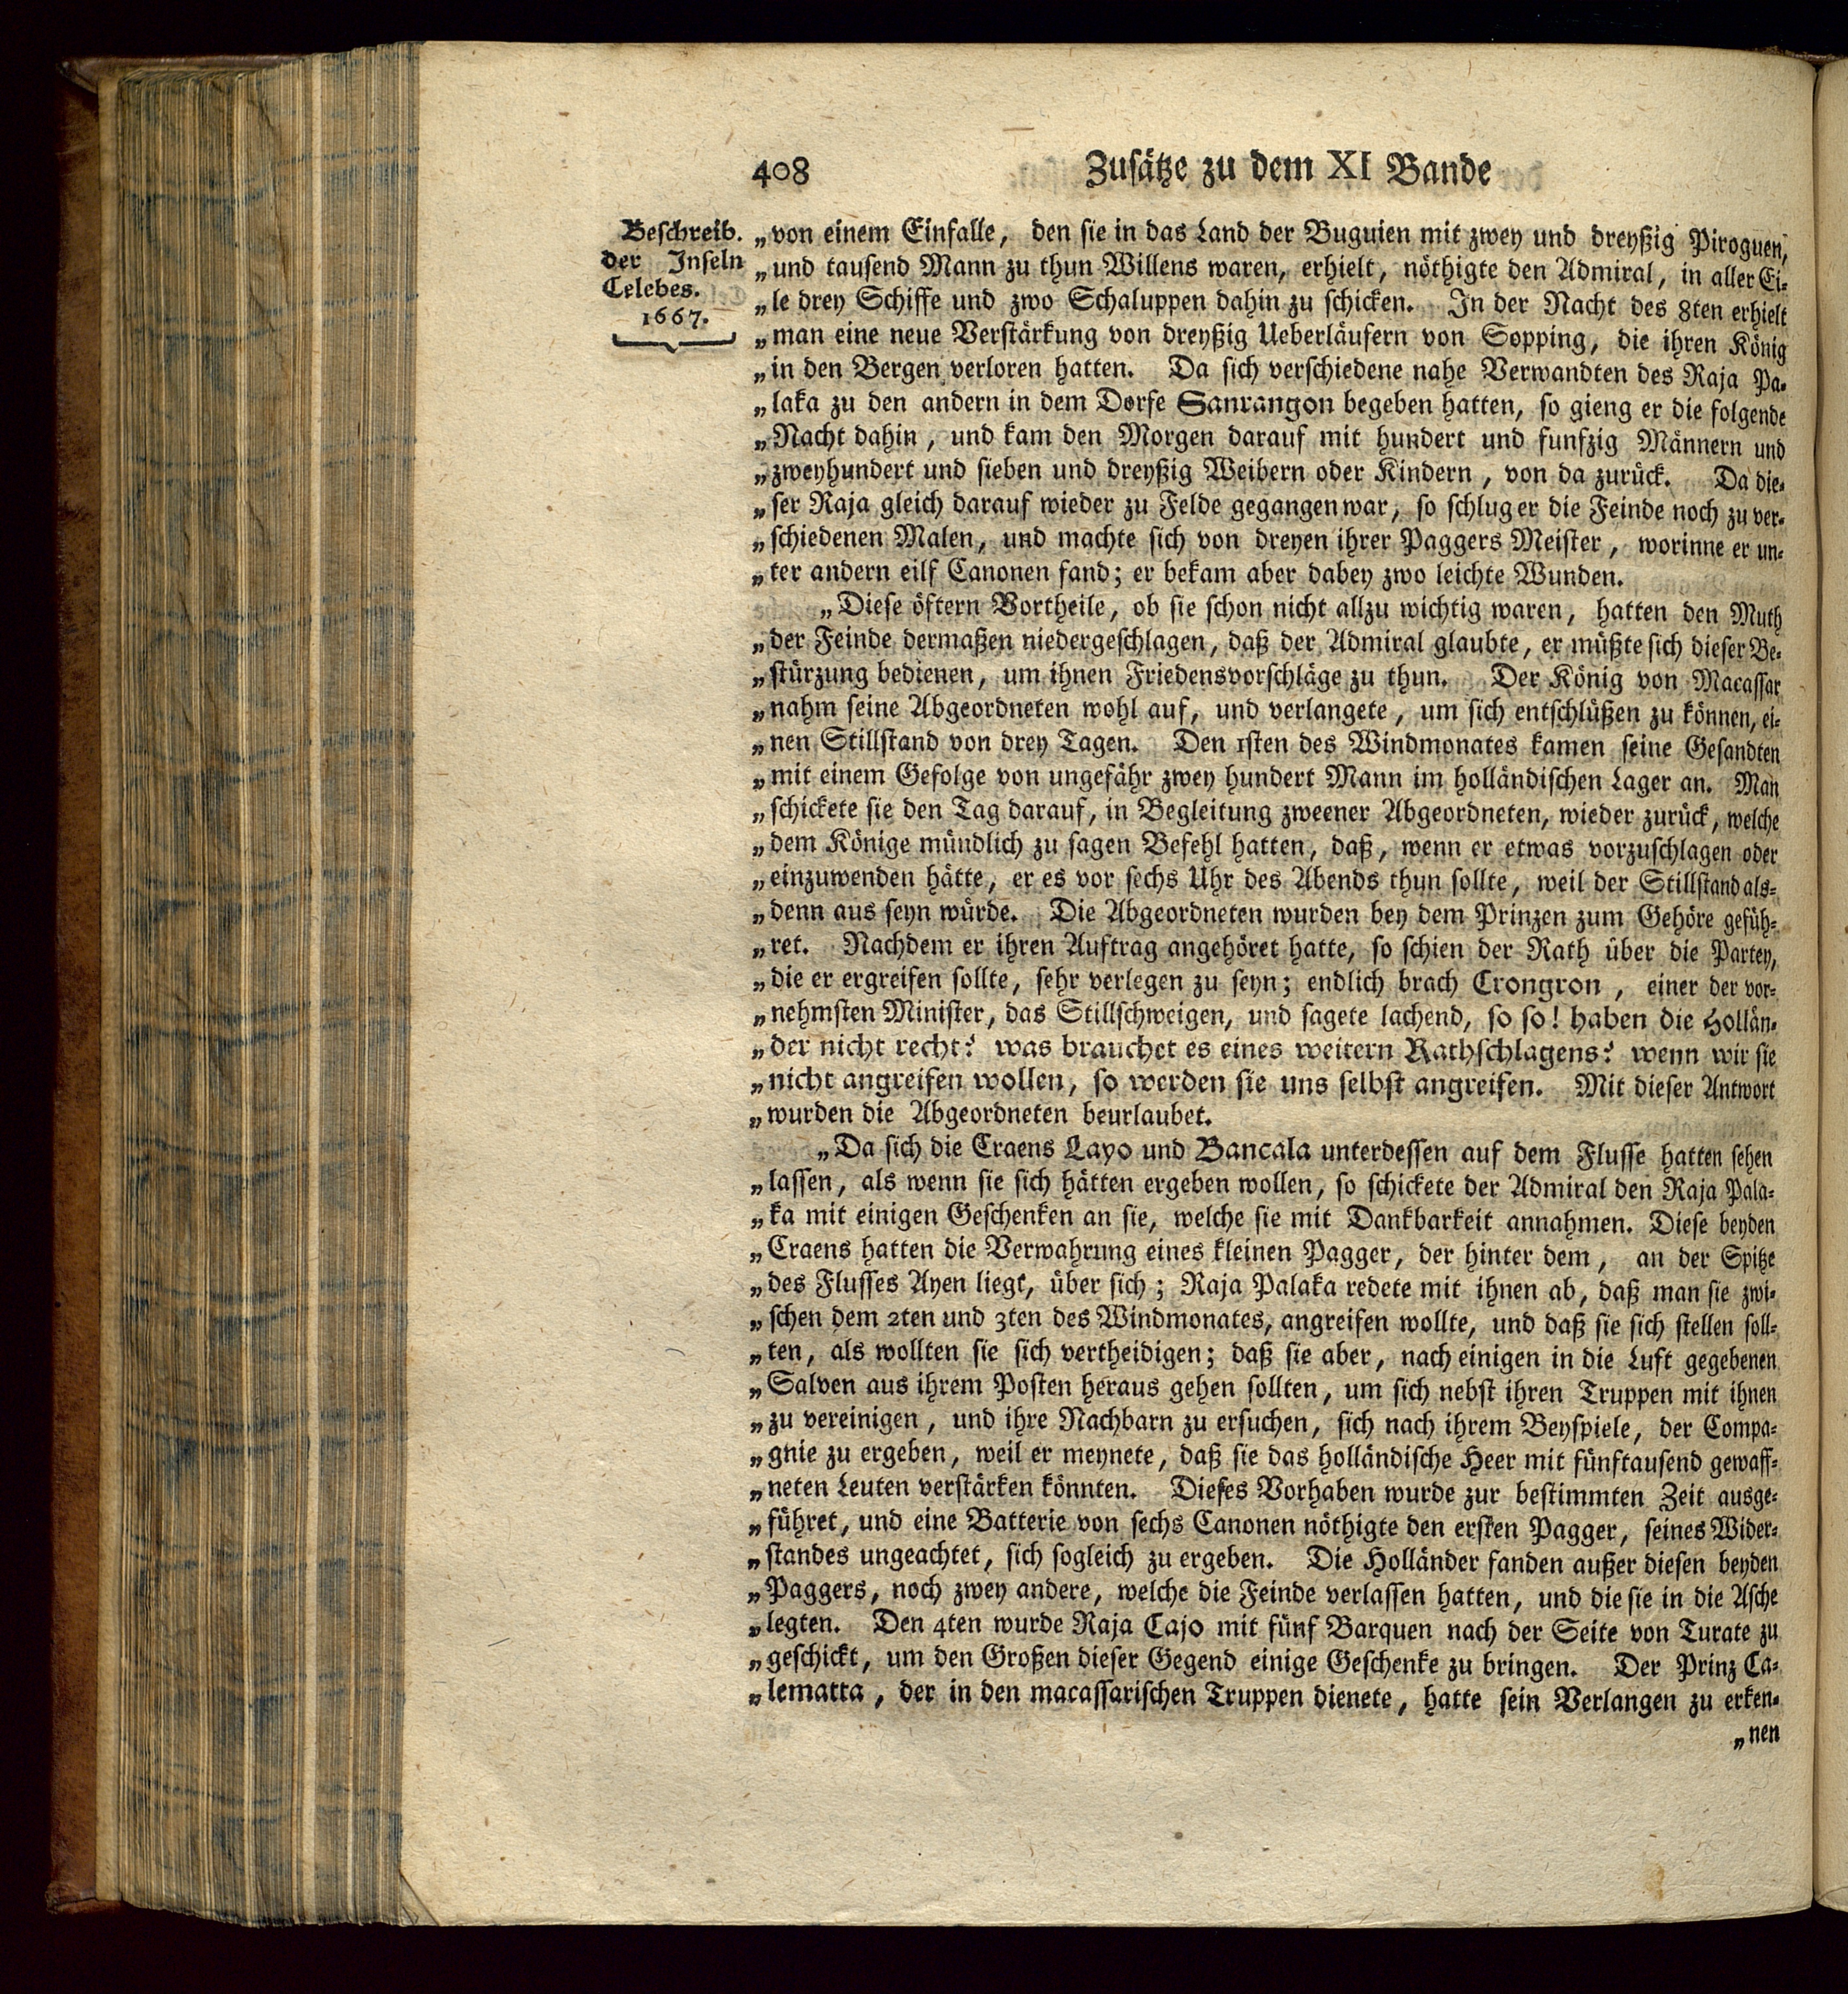 408 Zusätze zu dem XI Bande
Beschreib.
der Inseln
Celebes.
1667.
„von einem Einfalle, den sie in das Land der Buguien mit zwey und dreyßig Piroguen,
„und tausend Mann zu thun Willens waren, erhielt, nöthigte den Admiral, in aller Ei-
„le drey Schiffe und zwo Schaluppen dahin zu schicken. In der Nacht des 8ten erhielt
„man eine neue Verstärkung von dreyßig Ueberläufern von Sopping, die ihren König
„in den Bergen verloren hatten. Da sich verschiedene nahe Verwandten des Raja Pa-
„laka zu den andern in dem Dorfe Sanrangon begeben hatten, so gieng er die folgende
„Nacht dahin, und kam den Morgen darauf mit hundert und funfzig Männern und
„zweyhundert und sieben und dreyßig Weibern oder Kindern, von da zurück. Da die-
„ser Raja gleich darauf wieder zu Felde gegangen war, so schlug er die Feinde noch zu ver-
„schiedenen Malen, und machte sich von dreyen ihrer Paggers Meister, worinne er un-
„ter andern eilf Canonen fand; er bekam aber dabey zwo leichte Wunden.
„Diese öftern Vortheile, ob sie schon nicht allzu wichtig waren, hatten den Muth
„der Feinde dermaßen niedergeschlagen, daß der Admiral glaubte, er müßte sich dieser Be-
„stürzung bedienen, um ihnen Friedensvorschläge zu thun. Der König von Macassar
„nahm seine Abgeordneten wohl auf, und verlangete, um sich entschlüßen zu können, ei-
„nen Stillstand von drey Tagen. Den 1sten des Windmonates kamen seine Gesandten
„mit einem Gefolge von ungefähr zwey hundert Mann im holländischen Lager an. Man
„schickete sie den Tag darauf, in Begleitung zweener Abgeordneten, wieder zurück, welche
„dem Könige mündlich zu sagen Befehl hatten, daß, wenn er etwas vorzuschlagen oder
„einzuwenden hätte, er es vor sechs Uhr des Abends thun sollte, weil der Stillstand als-
„denn aus seyn würde. Die Abgeordneten wurden bey dem Prinzen zum Gehöre gefüh-
„ret. Nachdem er ihren Auftrag angehöret hatte, so schien der Rath über die Partey,
„die er ergreifen sollte, sehr verlegen zu seyn; endlich brach Crongron, einer der vor-
„nehmsten Minister, das Stillschweigen, und sagete lachend, so so! haben die Hollän-
„der nicht recht? was brauchet es eines weitern Rathschlagens? wenn wir sie
„nicht angreifen wollen, so werden sie uns selbst angreifen. Mit dieser Antwort
„wurden die Abgeordneten beurlaubet.
„Da sich die Craens Layo und Bancala unterdessen auf dem Flusse hatten sehen
„lassen, als wenn sie sich hätten ergeben wollen, so schickete der Admiral den Raja Pala-
„ka mit einigen Geschenken an sie, welche sie mit Dankbarkeit annahmen. Diese beyden
„Craens hatten die Verwahrung eines kleinen Pagger, der hinter dem, an der Spitze
„des Flusses Ayen liegt, über sich; Raja Palaka redete mit ihnen ab, daß man sie zwi-
„schen dem 2ten und 3ten des Windmonates, angreifen wollte, und daß sie sich stellen soll-
„ten, als wollten sie sich vertheidigen; daß sie aber, nach einigen in die Luft gegebenen
„Salven aus ihrem Posten heraus gehen sollten, um sich nebst ihren Truppen mit ihnen
„zu vereinigen, und ihre Nachbarn zu ersuchen, sich nach ihrem Beyspiele, der Compa-
„gnie zu ergeben, weil er meynete, daß sie das holländische Heer mit fünftausend gewaff-
„neten Leuten verstärken könnten. Dieses Vorhaben wurde zur bestimmten Zeit ausge-
„führet, und eine Batterie von sechs Canonen nöthigte den ersten Pagger, seines Wider-
„standes ungeachtet, sich sogleich zu ergeben. Die Holländer fanden außer diesen beyden
„Paggers, noch zwey andere, welche die Feinde verlassen hatten, und die sie in die Asche
„legten. Den 4ten wurde Raja Cajo mit fünf Barquen nach der Seite von Turate zu
„geschickt, um den Großen dieser Gegend einige Geschenke zu bringen. Der Prinz Ca-
„lematta, der in den macassarischen Truppen dienete, hatte sein Verlangen zu erken-
„nen